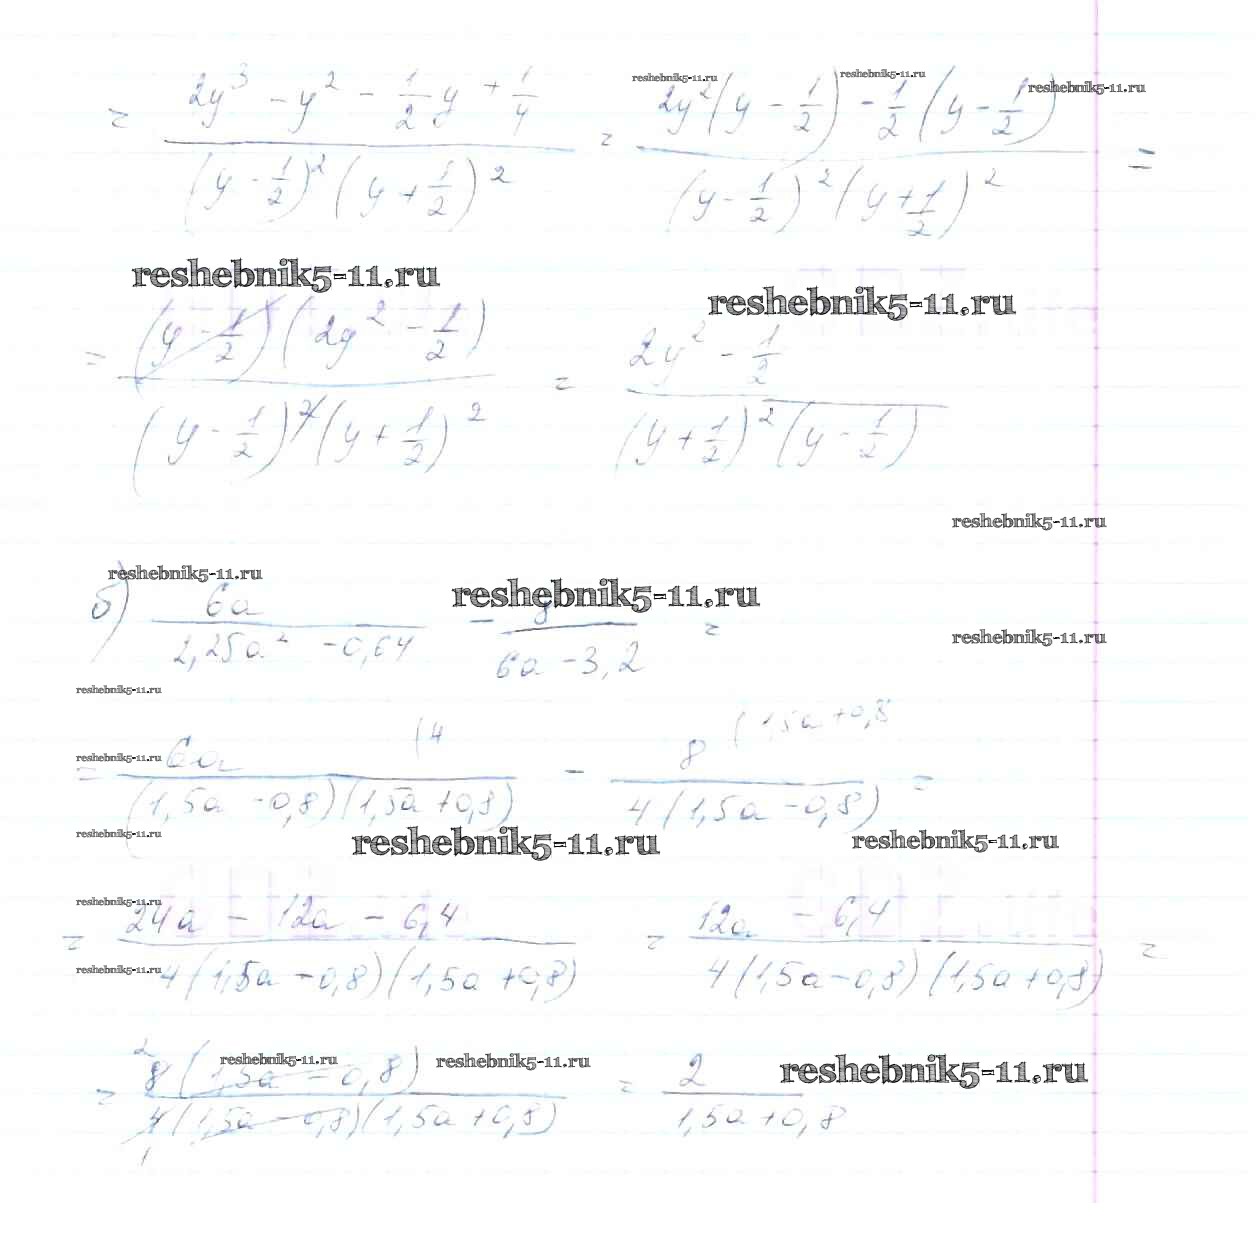 reshebnik5-11.ru reshebnik5-11.ru reshebnik5-11.ru
= (2y³ - y² - 1/2 y + 1/4) / ((y - 1/2)² (y + 1/2)²) = (2y² (y - 1/2) - 1/2 (y - 1/2)) / ((y - 1/2)² (y + 1/2)²) =
reshebnik5-11.ru reshebnik5-11.ru
= ((y - 1/2) (2y² - 1/2)) / ((y - 1/2)² (y + 1/2)²) = (2y² - 1/2) / ((y + 1/2)² (y - 1/2))
reshebnik5-11.ru
reshebnik5-11.ru reshebnik5-11.ru
б) 6a / (2,25a² - 0,64) - 8 / (6a - 3,2) =
reshebnik5-11.ru
reshebnik5-11.ru
(4 (1,5a + 0,8
reshebnik5-11.ru
= 6a / ((1,5a - 0,8)(1,5a + 0,8)) - 8 / (4(1,5a - 0,8)) =
reshebnik5-11.ru reshebnik5-11.ru reshebnik5-11.ru
reshebnik5-11.ru
= (24a - 12a - 6,4) / (4(1,5a - 0,8)(1,5a + 0,8)) = (12a - 6,4) / (4(1,5a - 0,8)(1,5a + 0,8)) =
reshebnik5-11.ru
reshebnik5-11.ru reshebnik5-11.ru reshebnik5-11.ru
2
= 8(1,5a - 0,8) / (4(1,5a - 0,8)(1,5a + 0,8)) = 2 / (1,5a + 0,8)
1